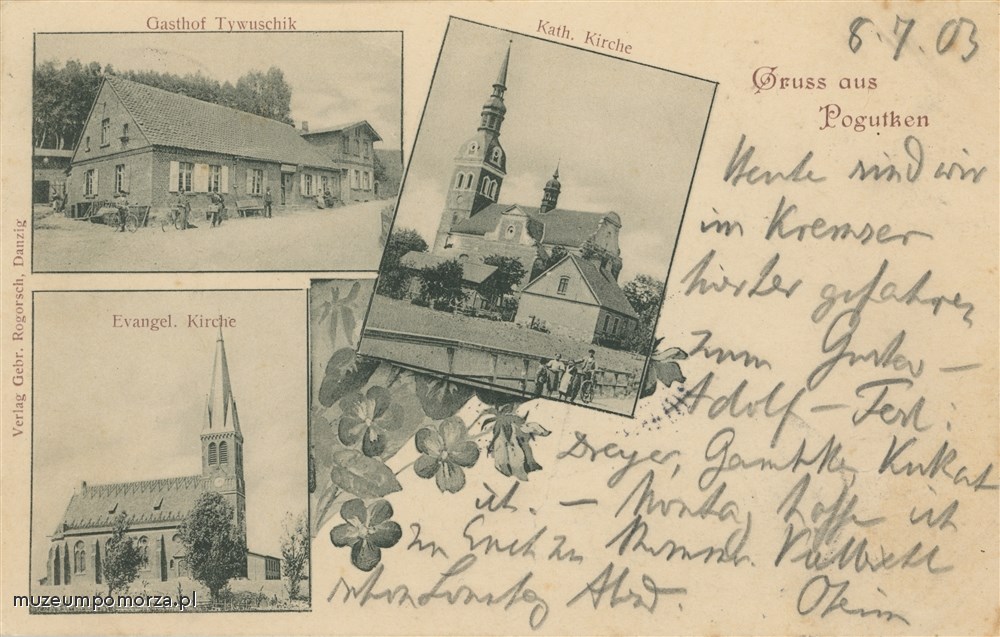 Gasthof Tywuschik
Kath. Kirche
8.7.03
Gruss aus
Pogutken
Evangel. Kirche
Verlag Gebr. Rogorsch, Danzig
Heute sind wir
im Kremser
hierher gefahren
zum Gustav-
Adolf-Fest.
Dreyer,
ich. – Montag hoffe ich
zu kommen. Vielleicht
schon Sonntag Abend.
muzeumpomorza.pl